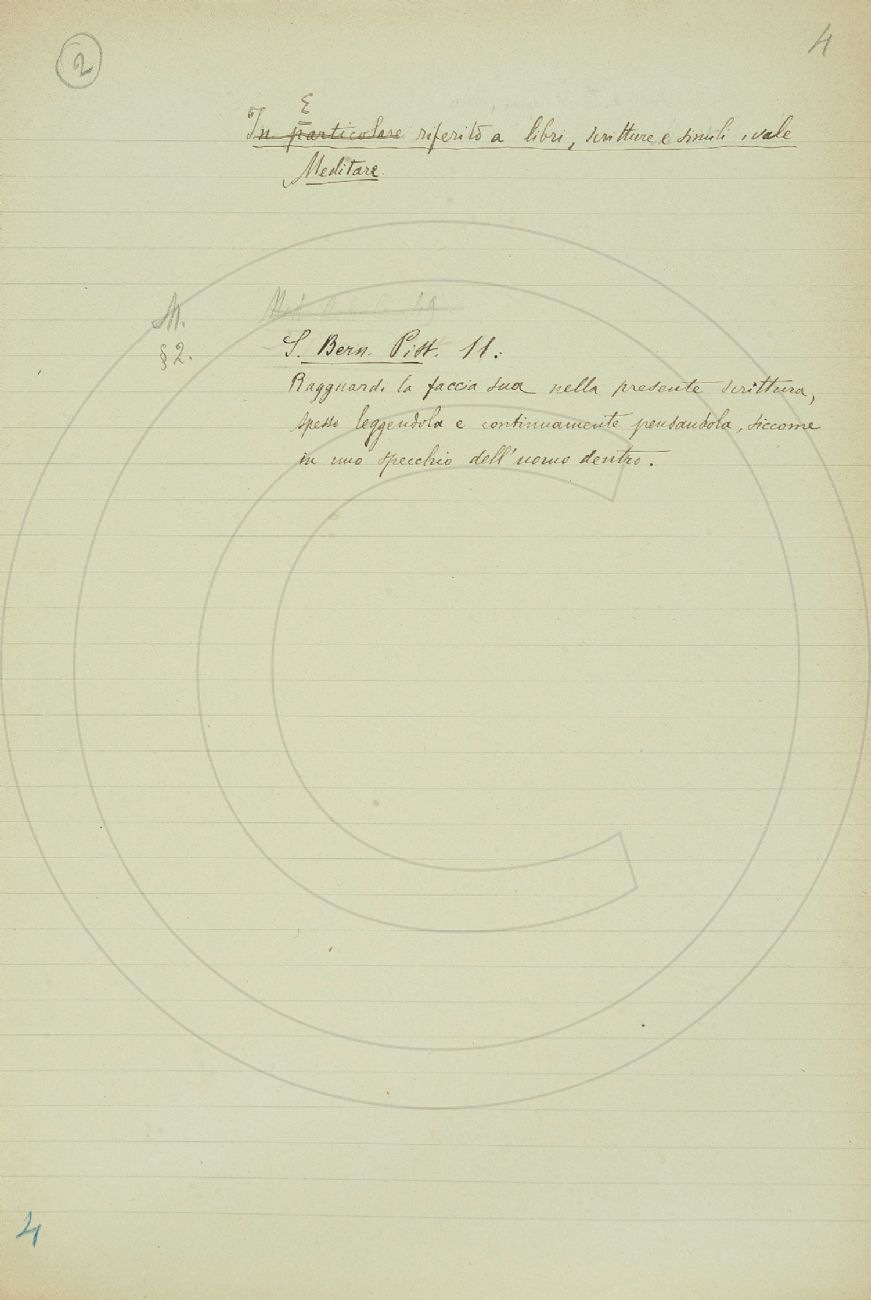 2
4
E
In particolare riferito a libri, scritture e simili, vale
Meditare
M.
§ 2.
S. Bern. Pist. 11.:
Ragguardi la faccia sua nella presente scrittura,
spesso leggendola e continuamente pensandola, siccome
in uno specchio dell'uomo dentro.
4